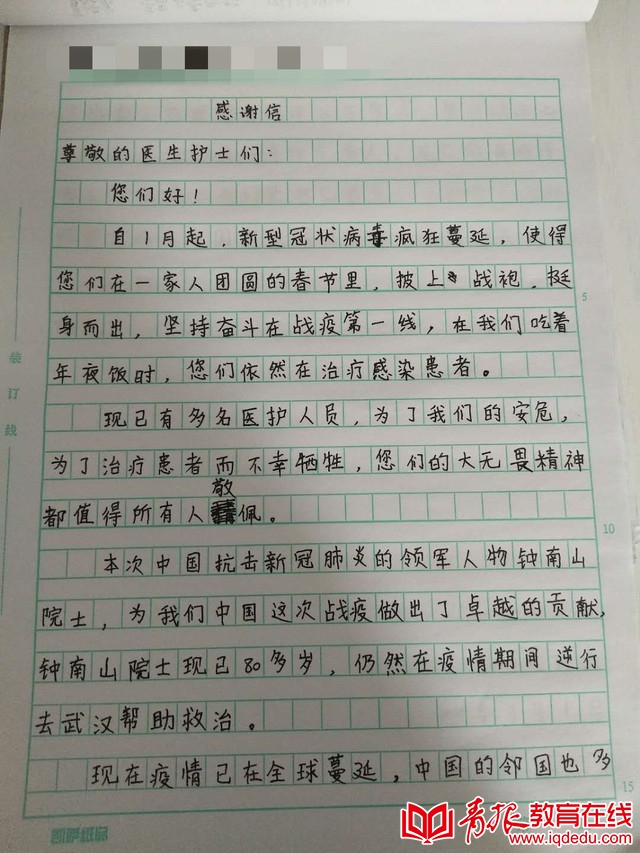 感谢信
尊敬的医生护士们：
您们好！
自1月起，新型冠状病毒疯狂蔓延，使得
您们在一家人团圆的春节里，披上战袍，挺
身而出，坚持奋斗在战疫第一线，在我们吃着
年夜饭时，您们依然在治疗感染患者。
现已有多名医护人员，为了我们的安危，
为了治疗患者而不幸牺牲，您们的大无畏精神
都值得所有人敬佩。
本次中国抗击新冠肺炎的领军人物钟南山
院士，为我们中国这次战疫做出了卓越的贡献，
钟南山院士现已80多岁，仍然在疫情期间逆行
去武汉帮助救治。
现在疫情已在全球蔓延，中国的邻国也多
装订线
5
10
15
青报教育在线
www.iqdedu.com